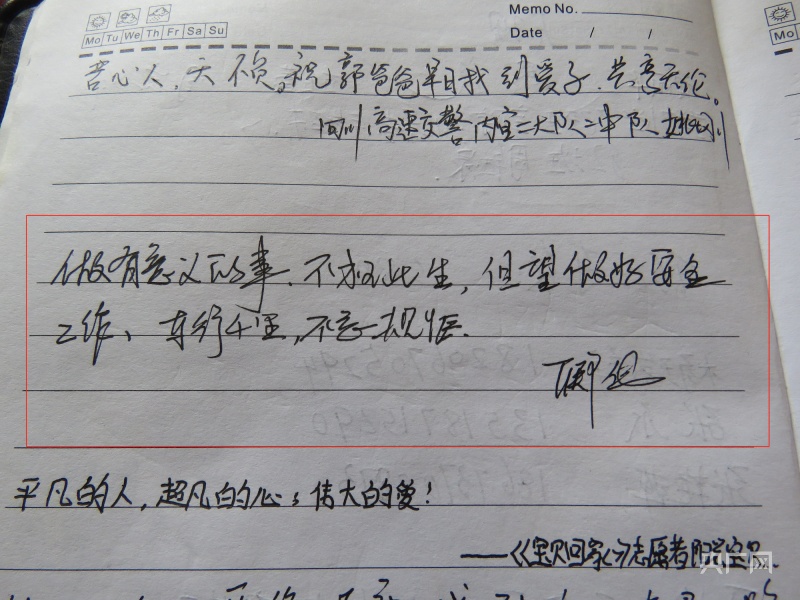 Memo No.
Mo Tu We Th Fr Sa Su
Date / /
Mo
苦心人，天不负。祝郭爸爸早日找到爱子，共享天伦。
四川高速交警内宜二大队二中队
做有意义的事，不枉此生，但望做好安全
工作、车行千里，不忘规矩。
平凡的人，超凡的心，伟大的爱！
——《宝贝回家》志愿者
央广网